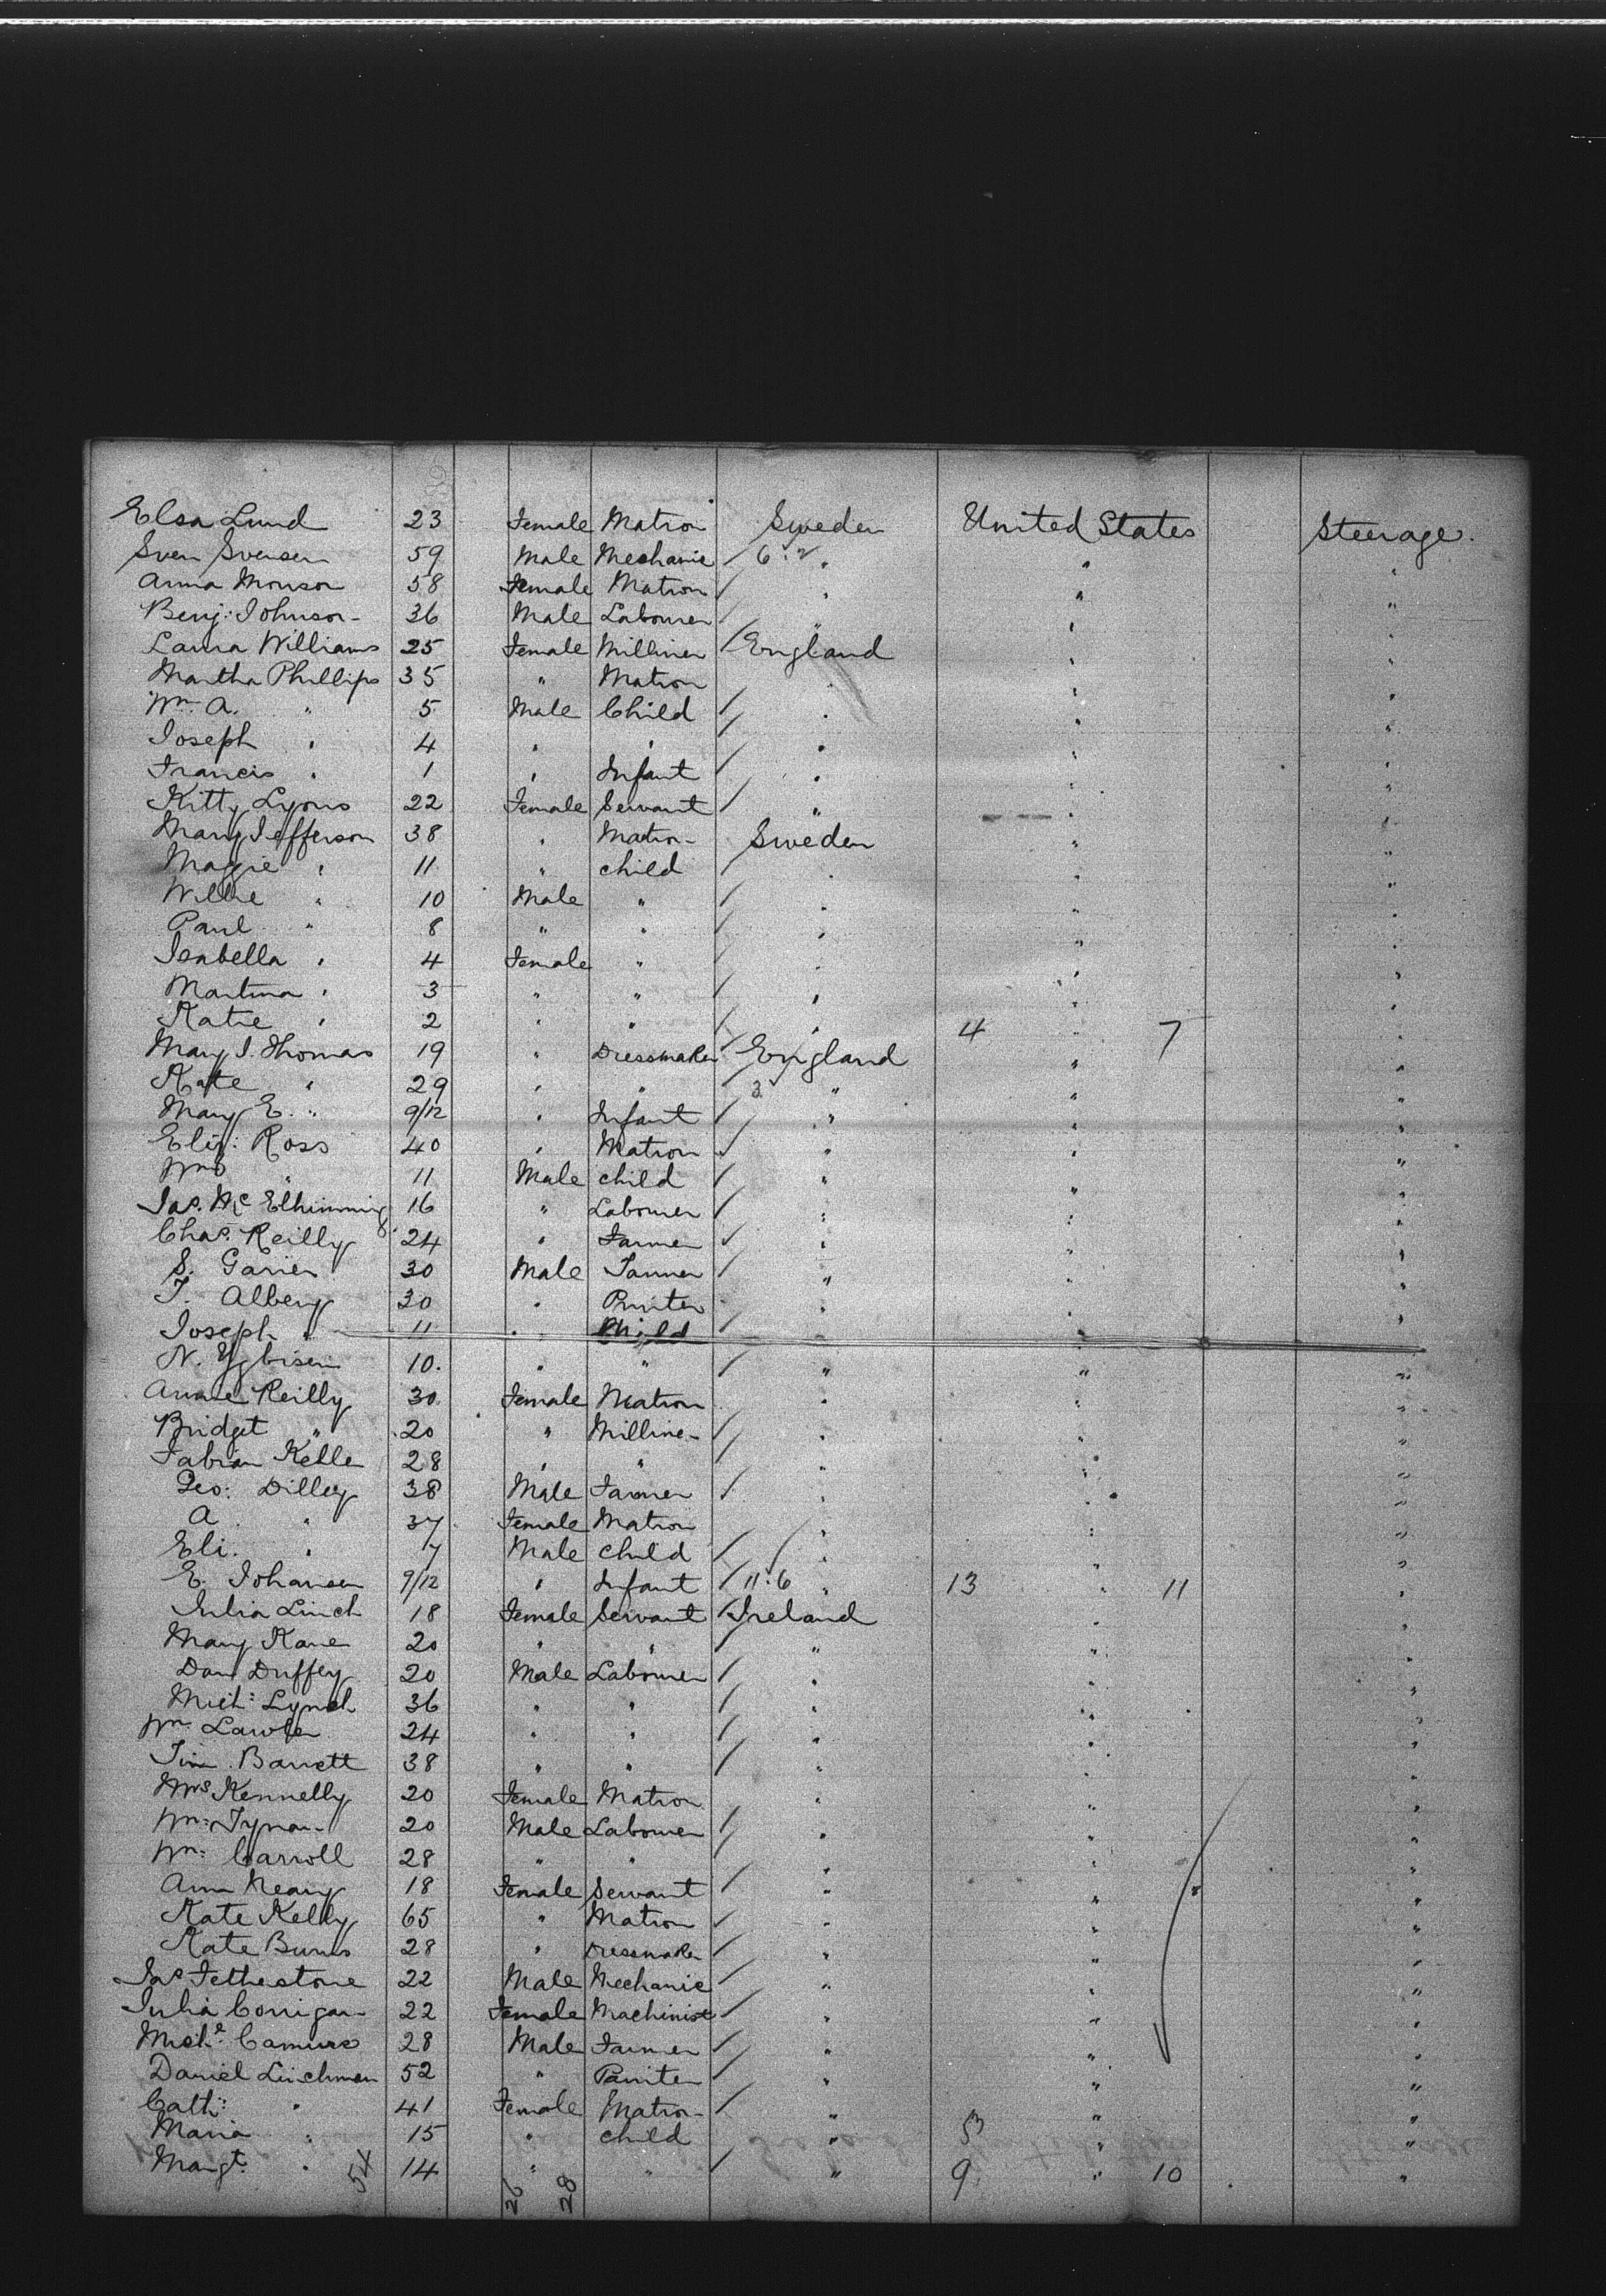 Elsa Lund 23 Female Matron Sweden United States Steerage.
Sven Svensen 59 Male Mechanic 6 : 2 " " "
Anna Monson 58 Female Matron " " "
Benj: Johnson 36 Male Labourer " " "
Laura Williams 25 Female Milliner England " "
Martha Phillips 35 " Matron " " "
Wm. A. " 5 Male Child " " "
Joseph " 4 " " " " "
Francis " 1 " Infant " " "
Kitty Lyons 22 Female Servant " " "
Mary Jefferson 38 " Matron Sweden " "
Maggie " 11 " child " " "
Willie " 10 Male " " " "
Paul " 8 " " " " "
Isabella " 4 Female " " " "
Martina " 3 " " " " "
Katie " 2 " " " 4 " 7 "
Mary J. Thomas 19 " Dressmaker England " "
Kate " 29 " " 3 " " "
Mary E. " 9/12 " Infant " " "
Eliz: Ross 40 " Matron " " "
Wm " 11 Male child " " "
Jas. Mc 16 " Labourer " " "
Chas. Reilly 24 " Farmer " " "
S. 30 Male " " "
T. Alberg 30 " " " "
Joseph " 11 " Child " " "
N. 10. " " " " "
Annie Reilly 30 Female Matron " " "
Bridget " 20 " Milliner " " "
Fabian Kelle 28 " " " " "
Geo: Dilley 38 Male Farmer " " "
A " 37 Female Matron " " "
Eli. " 7 Male child " " "
E. Johansen 9/12 " Infant 11:6 " 13 " 11 "
Julia Linch 18 Female Servant Ireland " "
Mary Kane 20 " " " " "
Dan Duffey 20 Male Labourer " " "
Mich: Lynch 36 " " " " "
Wm. Lawler 24 " " " " "
Tim. Barrett 38 " " " " "
Mrs. Kennelly 20 Female Matron " " "
Wm: Tynan 20 Male Labourer " " "
Wm: Carroll 28 " " " " "
Ann Neary 18 Female Servant " " "
Kate Kelly 65 " Matron " " "
Kate Burns 28 " Dressmaker " " "
Jas Fetherstone 22 Male Mechanic " " "
Julia Corrigan 22 Female Machinist " " "
Michl. 28 Male Farmer " " "
Daniel Linchman 52 " " " "
Cath: " 41 Female Matron " " "
Maria " 15 " child " " "
Margt. " 14 " " " 9 " 10 "
54 26 28